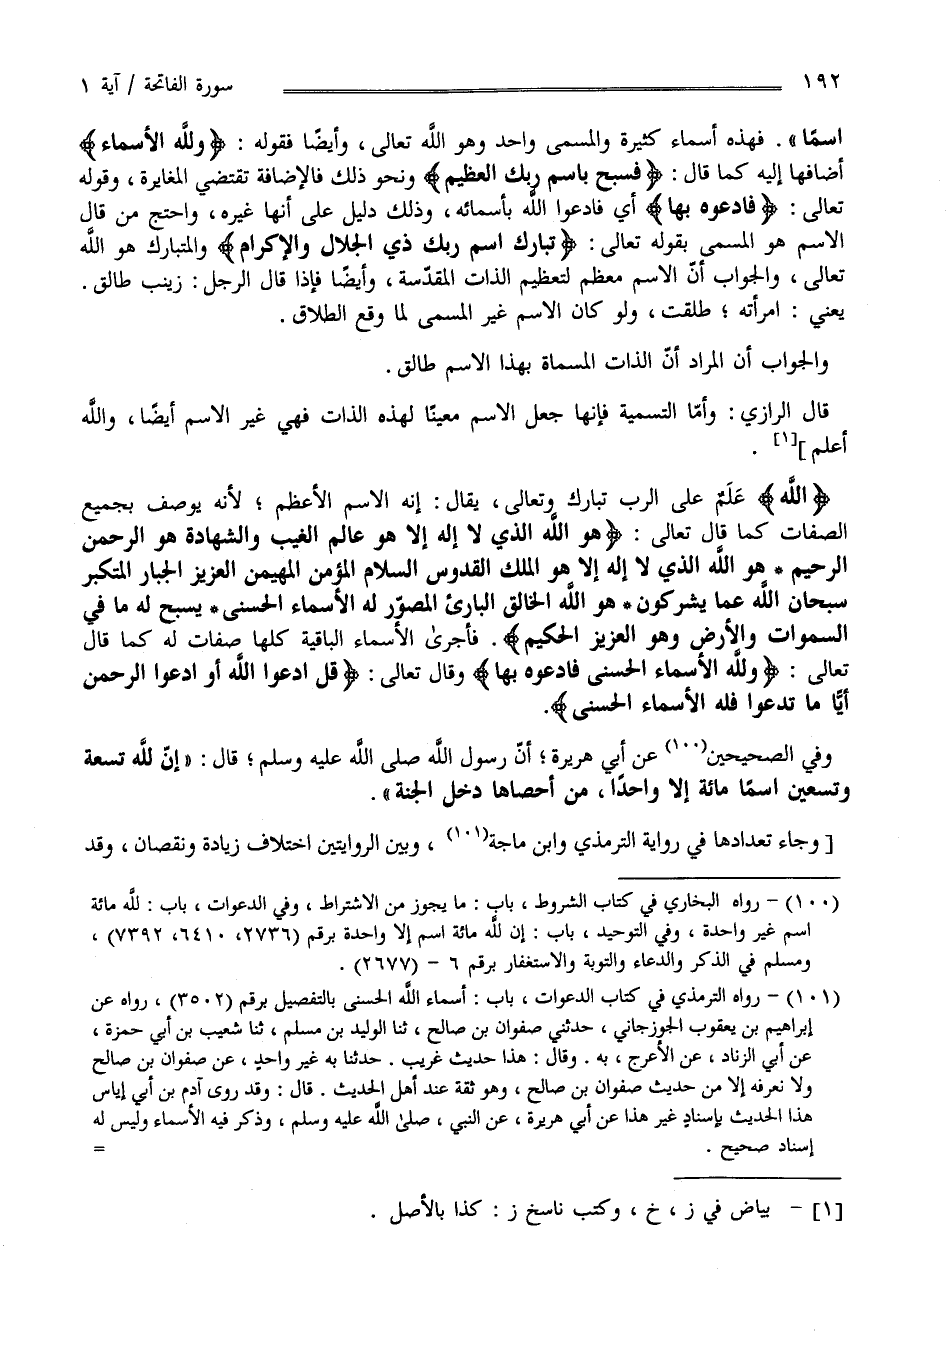 ١٩٢ سورة الفاتحة / آية ١
اسمًا » . فهذه أسماء كثيرة والمسمى واحد وهو اللَّه تعالى ، وأيضًا فقوله : ﴿ وللَّه الأسماء ﴾
أضافها إليه كما قال : ﴿ فسبح باسم ربك العظيم ﴾ ونحو ذلك فالإضافة تقتضي المغايرة ، وقوله
تعالى : ﴿ فادعوه بها ﴾ أي فادعوا اللَّه بأسمائه ، وذلك دليل على أنها غيره ، واحتج من قال
الاسم هو المسمى بقوله تعالى : ﴿ تبارك اسم ربك ذي الجلال والإكرام ﴾ والمتبارك هو اللَّه
تعالى ، والجواب أنّ الاسم معظم لتعظيم الذات المقدّسة ، وأيضًا فإذا قال الرجل : زينب طالق .
يعني : امرأته ؛ طلقت ، ولو كان الاسم غير المسمى لما وقع الطلاق .
والجواب أن المراد أنّ الذات المسماة بهذا الاسم طالق .
قال الرازي : وأمّا التسمية فإنها جعل الاسم معينًا لهذه الذات فهي غير الاسم أيضًا ، واللَّه
أعلم ][١] .
﴿ اللَّه ﴾ عَلَمٌ على الرب تبارك وتعالى ، يقال : إنه الاسم الأعظم ؛ لأنه يوصف بجميع
الصفات كما قال تعالى : ﴿ هو اللَّه الذي لا إله إلا هو عالم الغيب والشهادة هو الرحمن
الرحيم * هو اللَّه الذي لا إله إلا هو الملك القدوس السلام المؤمن المهيمن العزيز الجبار المتكبر
سبحان اللَّه عما يشركون * هو اللَّه الخالق البارئ المصوّر له الأسماء الحسنى * يسبح له ما في
السموات والأرض وهو العزيز الحكيم ﴾ . فأجرىٰ الأسماء الباقية كلها صفات له كما قال
تعالى : ﴿ وللَّه الأسماء الحسنى فادعوه بها ﴾ وقال تعالى : ﴿ قل ادعوا اللَّه أو ادعوا الرحمن
أيًّا ما تدعوا فله الأسماء الحسنى ﴾.
وفي الصحيحين(١٠٠) عن أبي هريرة ؛ أنّ رسول اللَّه صلى اللَّه عليه وسلم ؛ قال : « إنّ للَّه تسعة
وتسعين اسمًا مائة إلا واحدًا ، من أحصاها دخل الجنة » .
[ وجاء تعدادها في رواية الترمذي وابن ماجة(١٠١) ، وبين الروايتين اختلاف زيادة ونقصان ، وقد
(١٠٠) - رواه البخاري في كتاب الشروط ، باب : ما يجوز من الاشتراط ، وفي الدعوات ، باب : للَّه مائة
اسم غير واحدة ، وفي التوحيد ، باب : إن للَّه مائة اسم إلا واحدة برقم (٢٧٣٦، ٦٤١٠، ٧٣٩٢) ،
ومسلم في الذكر والدعاء والتوبة والاستغفار برقم ٦ - (٢٦٧٧) .
(١٠١) - رواه الترمذي في كتاب الدعوات ، باب : أسماء اللَّه الحسنى بالتفصيل برقم (٣٥٠٢) ، رواه عن
إبراهيم بن يعقوب الجوزجاني ، حدثني صفوان بن صالح ، ثنا الوليد بن مسلم ، ثنا شعيب بن أبي حمزة ،
عن أبي الزناد ، عن الأعرج ، به . وقال : هذا حديث غريب . حدثنا به غير واحدٍ ، عن صفوان بن صالح
ولا نعرفه إلا من حديث صفوان بن صالح ، وهو ثقة عند أهل الحديث . قال : وقد روى آدم بن أبي إياس
هذا الحديث بإسنادٍ غير هذا عن أبي هريرة ، عن النبي ، صلىٰ اللَّه عليه وسلم ، وذكر فيه الأسماء وليس له
إسناد صحيح . =
[١] - بياض في ز ، خ ، وكتب ناسخ ز : كذا بالأصل .